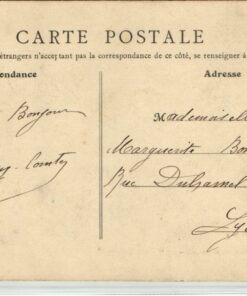 CARTE POSTALE
étrangers n'acceptant pas la correspondance de ce côté, se renseigner à
pondance
Adresse
Bonjour
Mademoisel
Marguerite Bon
Rue Duhamel
Ly